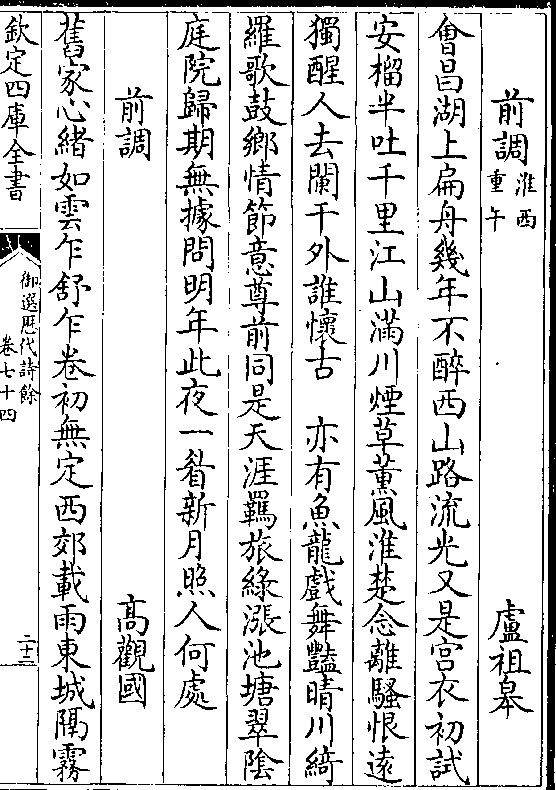 前調 淮西重午 盧祖皋
會昌湖上扁舟幾年不醉西山路流光又是宮衣初試
安榴半吐千里江山滿川煙草薰風淮楚念離騷恨遠
獨醒人去闌干外誰懷古 亦有魚龍戲舞豔晴川綺
羅歌鼓鄉情節意尊前同是天涯羈旅綠漲池塘翠陰
庭院歸期無據問明年此夜一眉新月照人何處
前調 高觀國
舊家心緒如雲乍舒乍卷初無定西郊載雨東城隔霧
欽定四庫全書
御選歷代詩餘
卷七十四
二十二